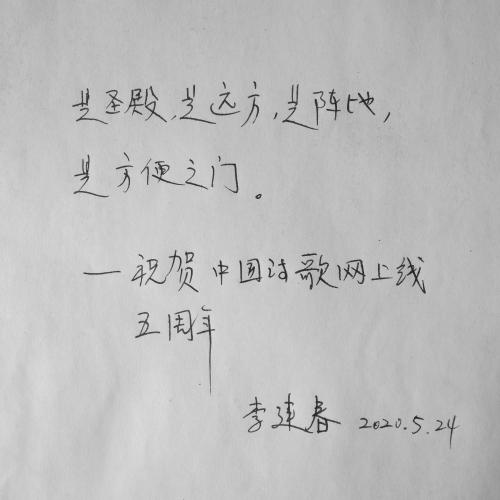 是圣殿,是远方,是阵地,
是方便之门。
—祝贺中国诗歌网上线
五周年
李建春 2020.5.24